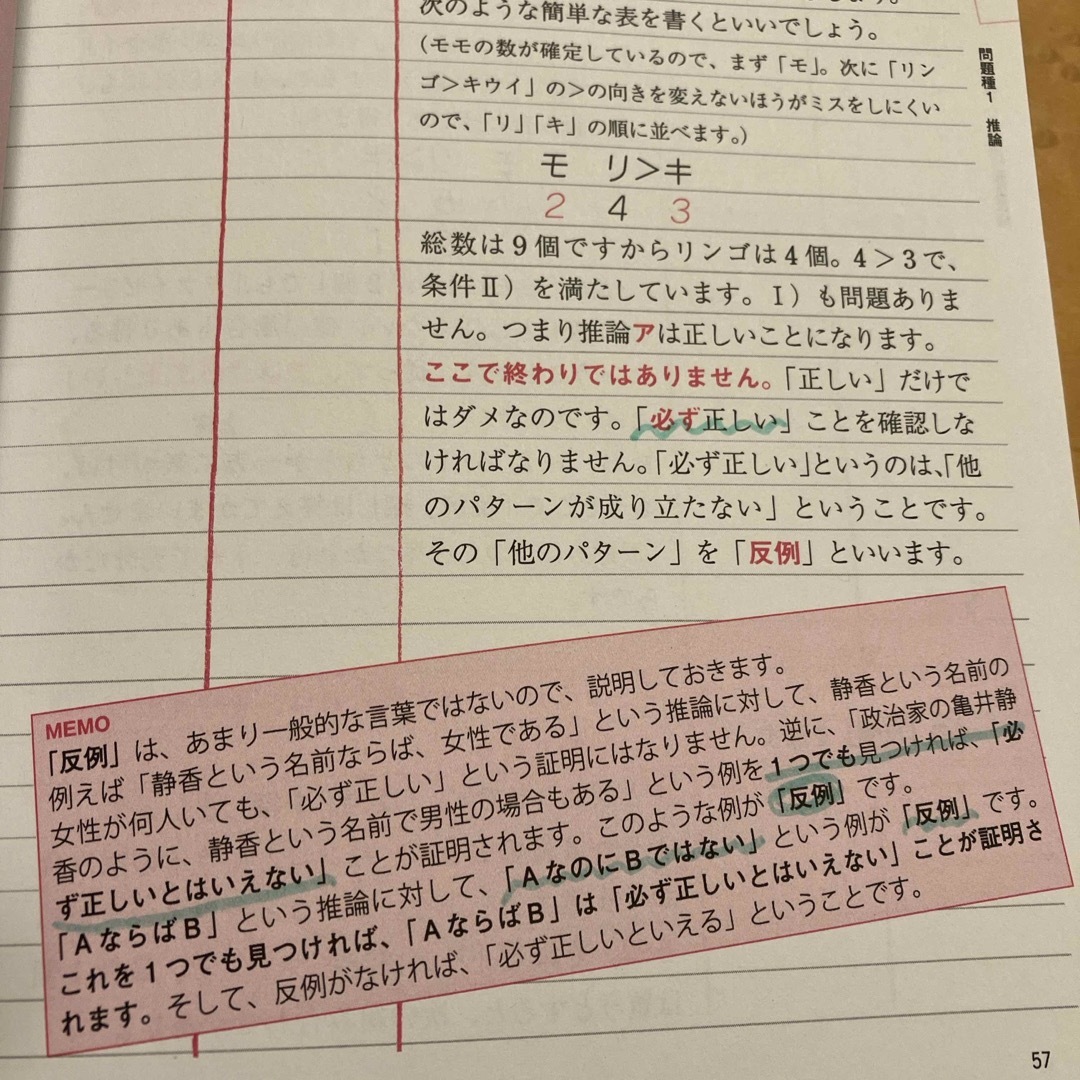 次のような簡単な表を書くといいでしょう。
(モモの数が確定しているので、まず「モ」。次に「リン
ゴ>キウイ」の>の向きを変えないほうがミスをしにくい
ので、「リ」「キ」の順に並べます。)
モ リ>キ
2 4 3
総数は9個ですからリンゴは4個。4>3で、
条件Ⅱ)を満たしています。Ⅰ)も問題ありま
せん。つまり推論アは正しいことになります。
ここで終わりではありません。「正しい」だけで
はダメなのです。「必ず正しい」ことを確認しな
ければなりません。「必ず正しい」というのは、「他
のパターンが成り立たない」ということです。
その「他のパターン」を「反例」といいます。
MEMO
「反例」は、あまり一般的な言葉ではないので、説明しておきます。
例えば「静香という名前ならば、女性である」という推論に対して、静香という名前の
女性が何人いても、「必ず正しい」という証明にはなりません。逆に、「政治家の亀井静
香のように、静香という名前で男性の場合もある」という例を1つでも見つければ、「必
ず正しいとはいえない」ことが証明されます。このような例が「反例」です。
「AならばB」という推論に対して、「AなのにBではない」という例が「反例」です。
これを1つでも見つければ、「AならばB」は「必ず正しいとはいえない」ことが証明さ
れます。そして、反例がなければ、「必ず正しいといえる」ということです。
問題種1 推論
57